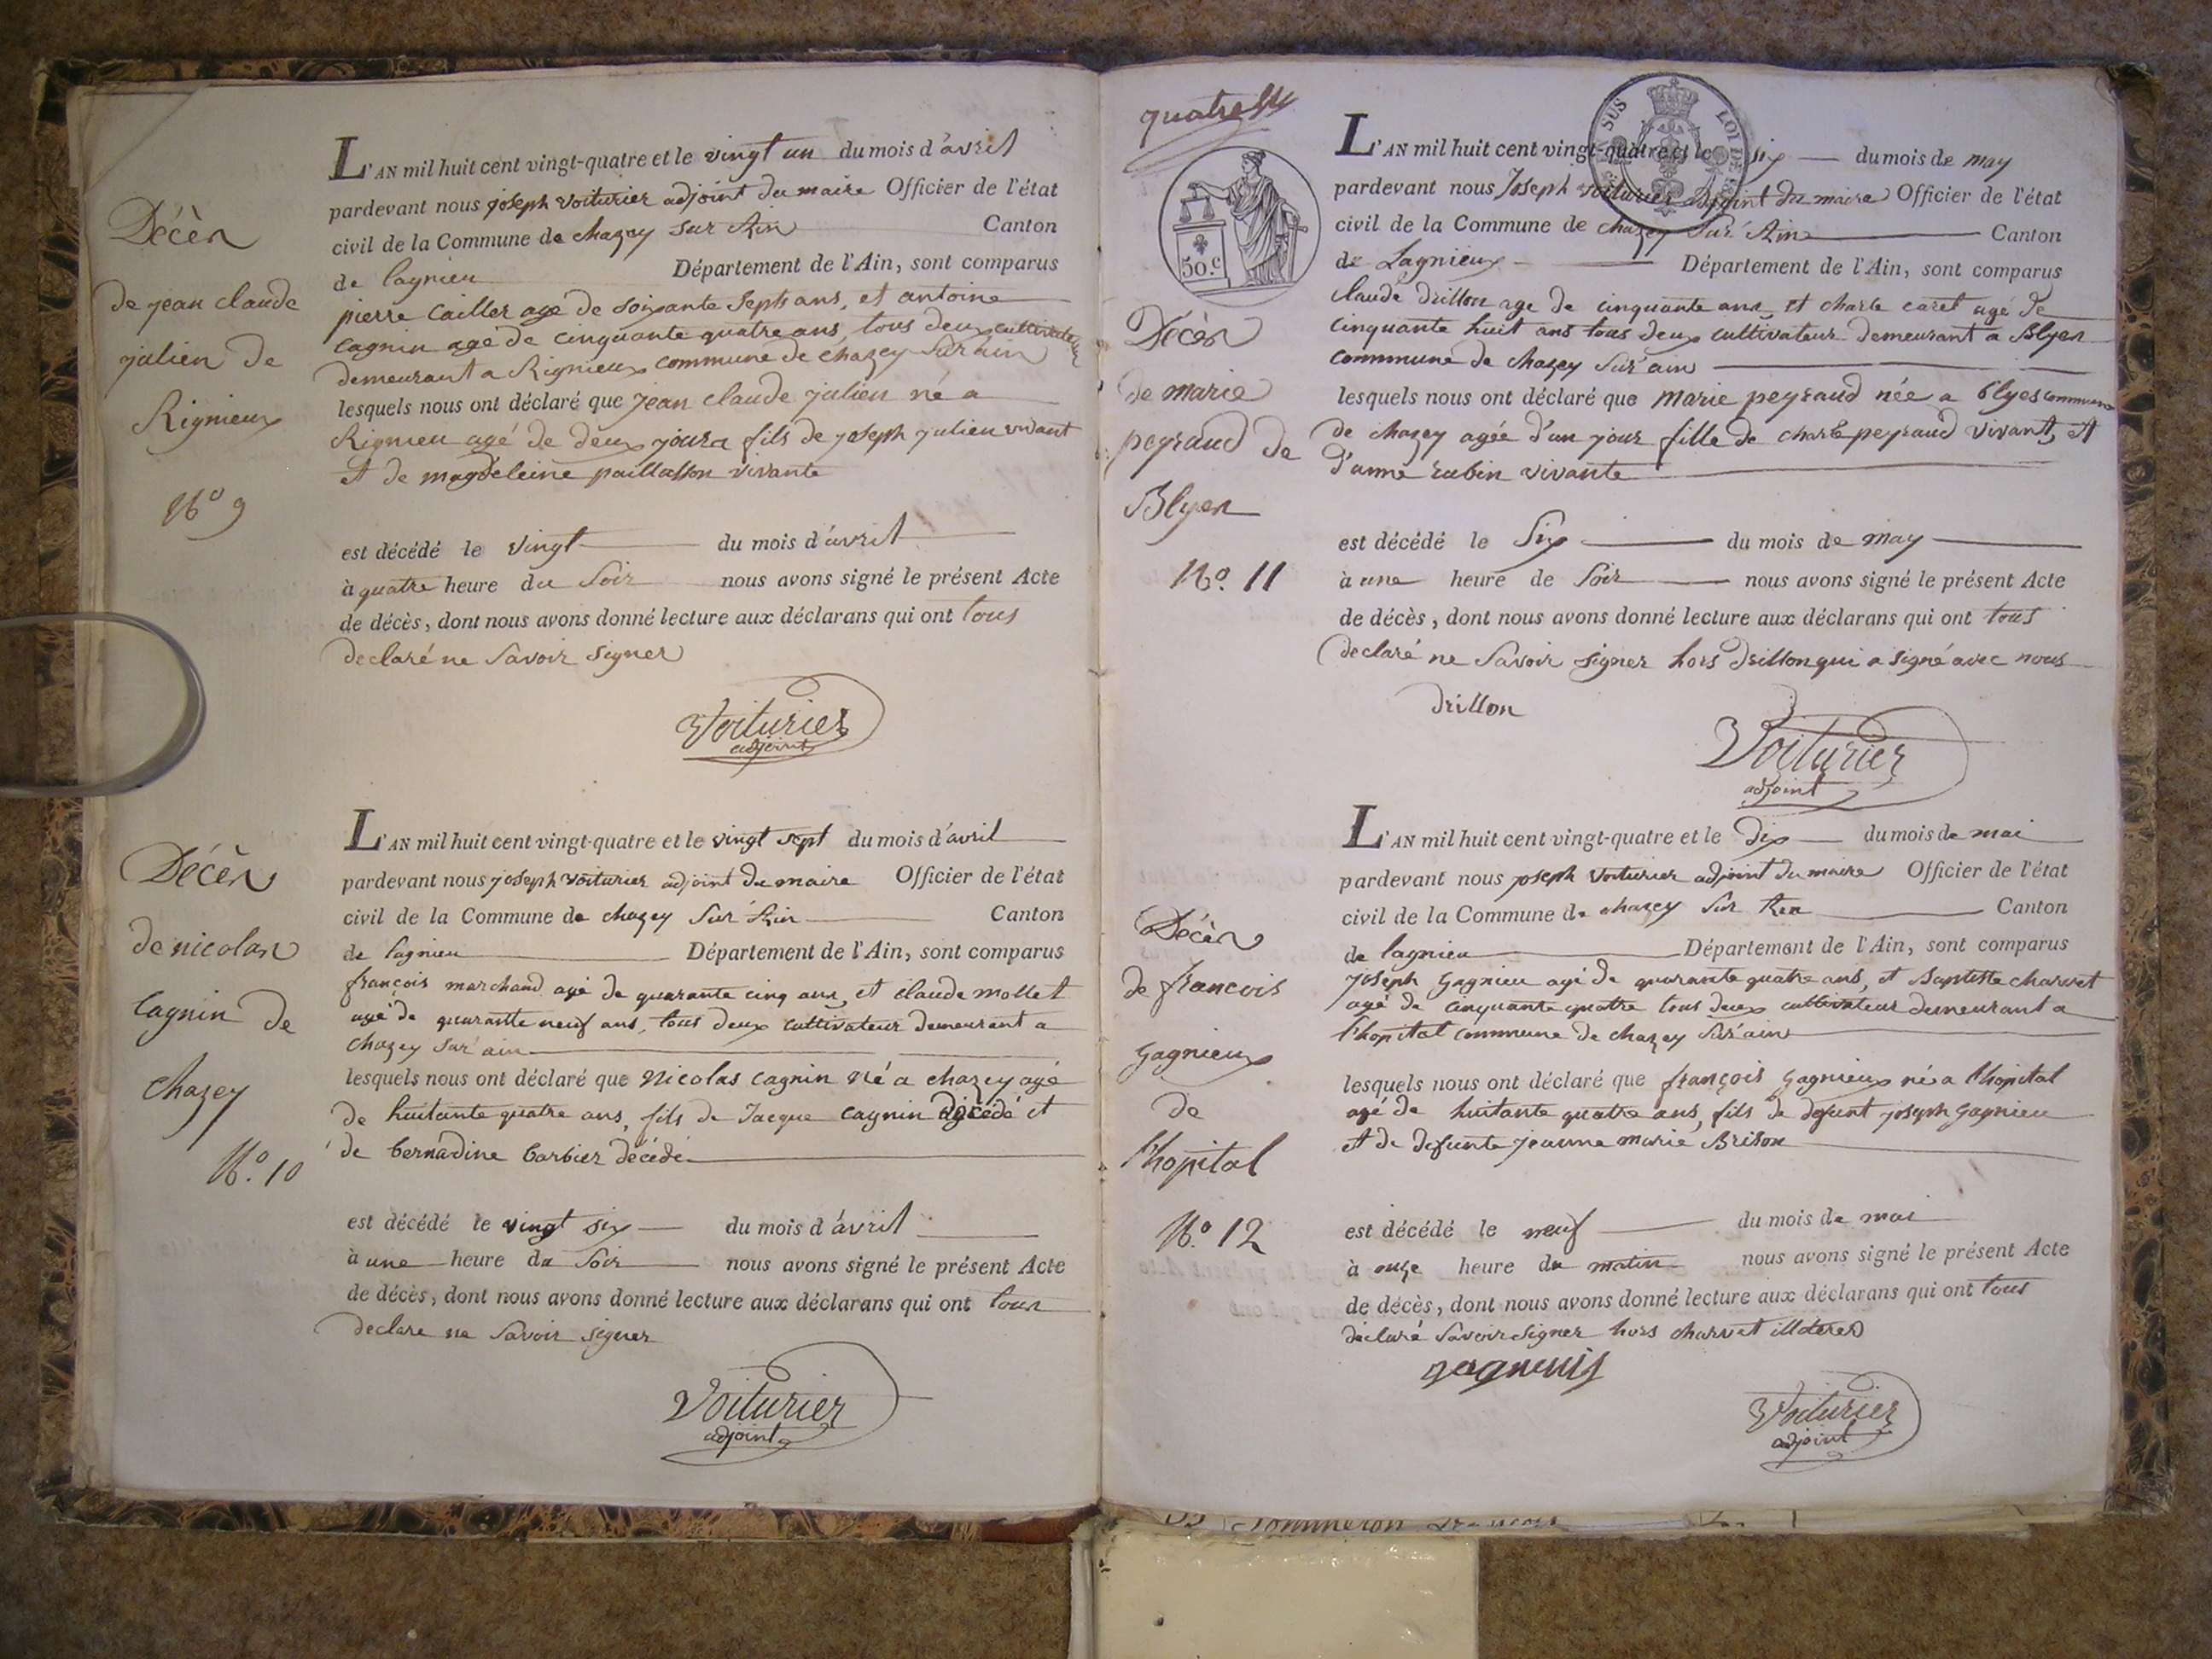 Décès
de jean claude
julien de
Rignieux
N.º 9
L'AN mil huit cent vingt-quatre et le vingt un du mois d'avril
pardevant nous joseph voiturier adjoint du maire Officier de l'état
civil de la Commune de chazey sur Ain Canton
de lagnieu Département de l'Ain, sont comparus
pierre Cailler agé de soixante septs ans, et antoine
cagnin agé de cinquante quatre ans, tous deux cultivateur
demeurant a Rignieux commune de chazey sur ain
lesquels nous ont déclaré que jean claude julien né a
Rignieu agé de deux jours fils de joseph julien vivant
et de magdeleine paillasson vivante
est décédé le vingt du mois d'avril
à quatre heure du soir nous avons signé le présent Acte
de décès, dont nous avons donné lecture aux déclarans qui ont tous
declaré ne savoir signer
Voiturier
adjoint
Décès
de nicolas
Cagnin de
chazey
N.º 10
L'AN mil huit cent vingt-quatre et le vingt sept du mois d'avril
pardevant nous joseph voiturier adjoint du maire Officier de l'état
civil de la Commune de chazey sur Ain Canton
de lagnieu Département de l'Ain, sont comparus
françois marchand agé de quarante cinq ans, et claude mollet
agé de quarantte neuf ans, tous deux cultivateur demeurant a
chazey sur ain
lesquels nous ont déclaré que Nicolas cagnin né a chazey agé
de huitante quatre ans, fils de Jacque cagnin décédé et
de bernadine barbier décédé
est décédé le vingt six du mois d'avril
à une heure du soir nous avons signé le présent Acte
de décès, dont nous avons donné lecture aux déclarans qui ont tous
declare ne savoir signer
Voiturier
adjoint
quatre
50.c
LOI DE
Décès
de marie
peyraud de
Blyes
N.º 11
L'AN mil huit cent vingt-quatre et le six du mois de may
pardevant nous Joseph voiturier adjoint du maire Officier de l'état
civil de la Commune de chazey sur Ain Canton
de Lagnieux Département de l'Ain, sont comparus
claude drillon age de cinquante ans et charle caret agé de
cinquante huit ans tous deux cultivateur demeurant a Blyes
commmune de chazey sur ain
lesquels nous ont déclaré que marie peyraud née a blyes commune
de chazey agée d'un jour fille de charle peyraud vivant, et
d'anne rubin vivante
est décédé le six du mois de may
à une heure de soir nous avons signé le présent Acte
de décès, dont nous avons donné lecture aux déclarans qui ont tous
declaré ne savoir signer hors drillon qui a signé avec nous
drillon
Voiturier
adjoint
Décès
de francois
gagnieux
de
l'hopital
N.º 12
L'AN mil huit cent vingt-quatre et le dix du mois de mai
pardevant nous joseph voiturier adjoint du maire Officier de l'état
civil de la Commune de chazey sur Ain Canton
de lagnieu Département de l'Ain, sont comparus
joseph gagnieu agé de quarante quatre ans, et Baptiste charvet
agé de cinquante quatre tous deux cultivateur demeurant a
l'hopital commune de chazey sur ain
lesquels nous ont déclaré que françois gagnieux né a l'hopital
agé de huitante quatre ans, fils de defunt joseph gagnieu
et de defunte jeanne marie Brison
est décédé le neuf du mois de mai
à onze heure du matin nous avons signé le présent Acte
de décès, dont nous avons donné lecture aux déclarans qui ont tous
déclaré savoir signer hors charvet illeteré
Voiturier
adjoint